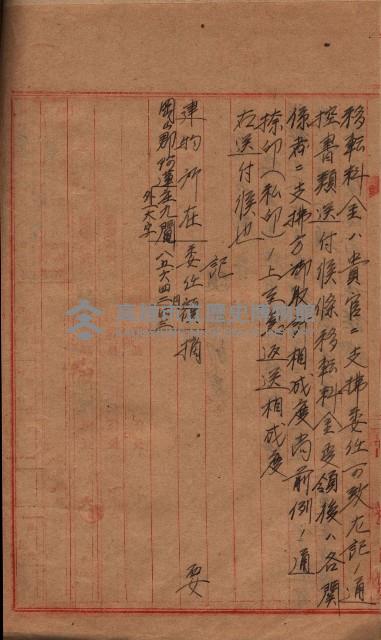 移転料金ハ貴官ニ支拂委任可致左記ノ通
控書類送付候條移転料金受領後ハ各関
係者ニ支拂方御取計相成度尚前例ノ通
捺印(私印)ノ上至急返送相成度
右送付候也
記
建物所在 委任額 摘要
岡山郡阿蓮庄九関
外一大字
高雄市立歷史博物館